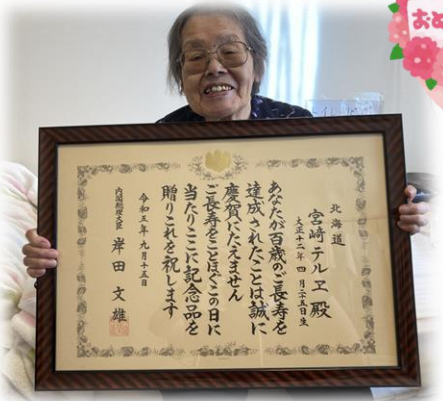 おめ
北海道
宮﨑テルヱ 殿
大正十二年 四月二十五日生
あなたが百歳のご長寿を
達成されたことは誠に
慶賀にたえません
ご長寿をことほぐこの日に
当たりここに記念品を
贈りこれを祝します
令和五年九月十五日
内閣総理大臣 岸田文雄